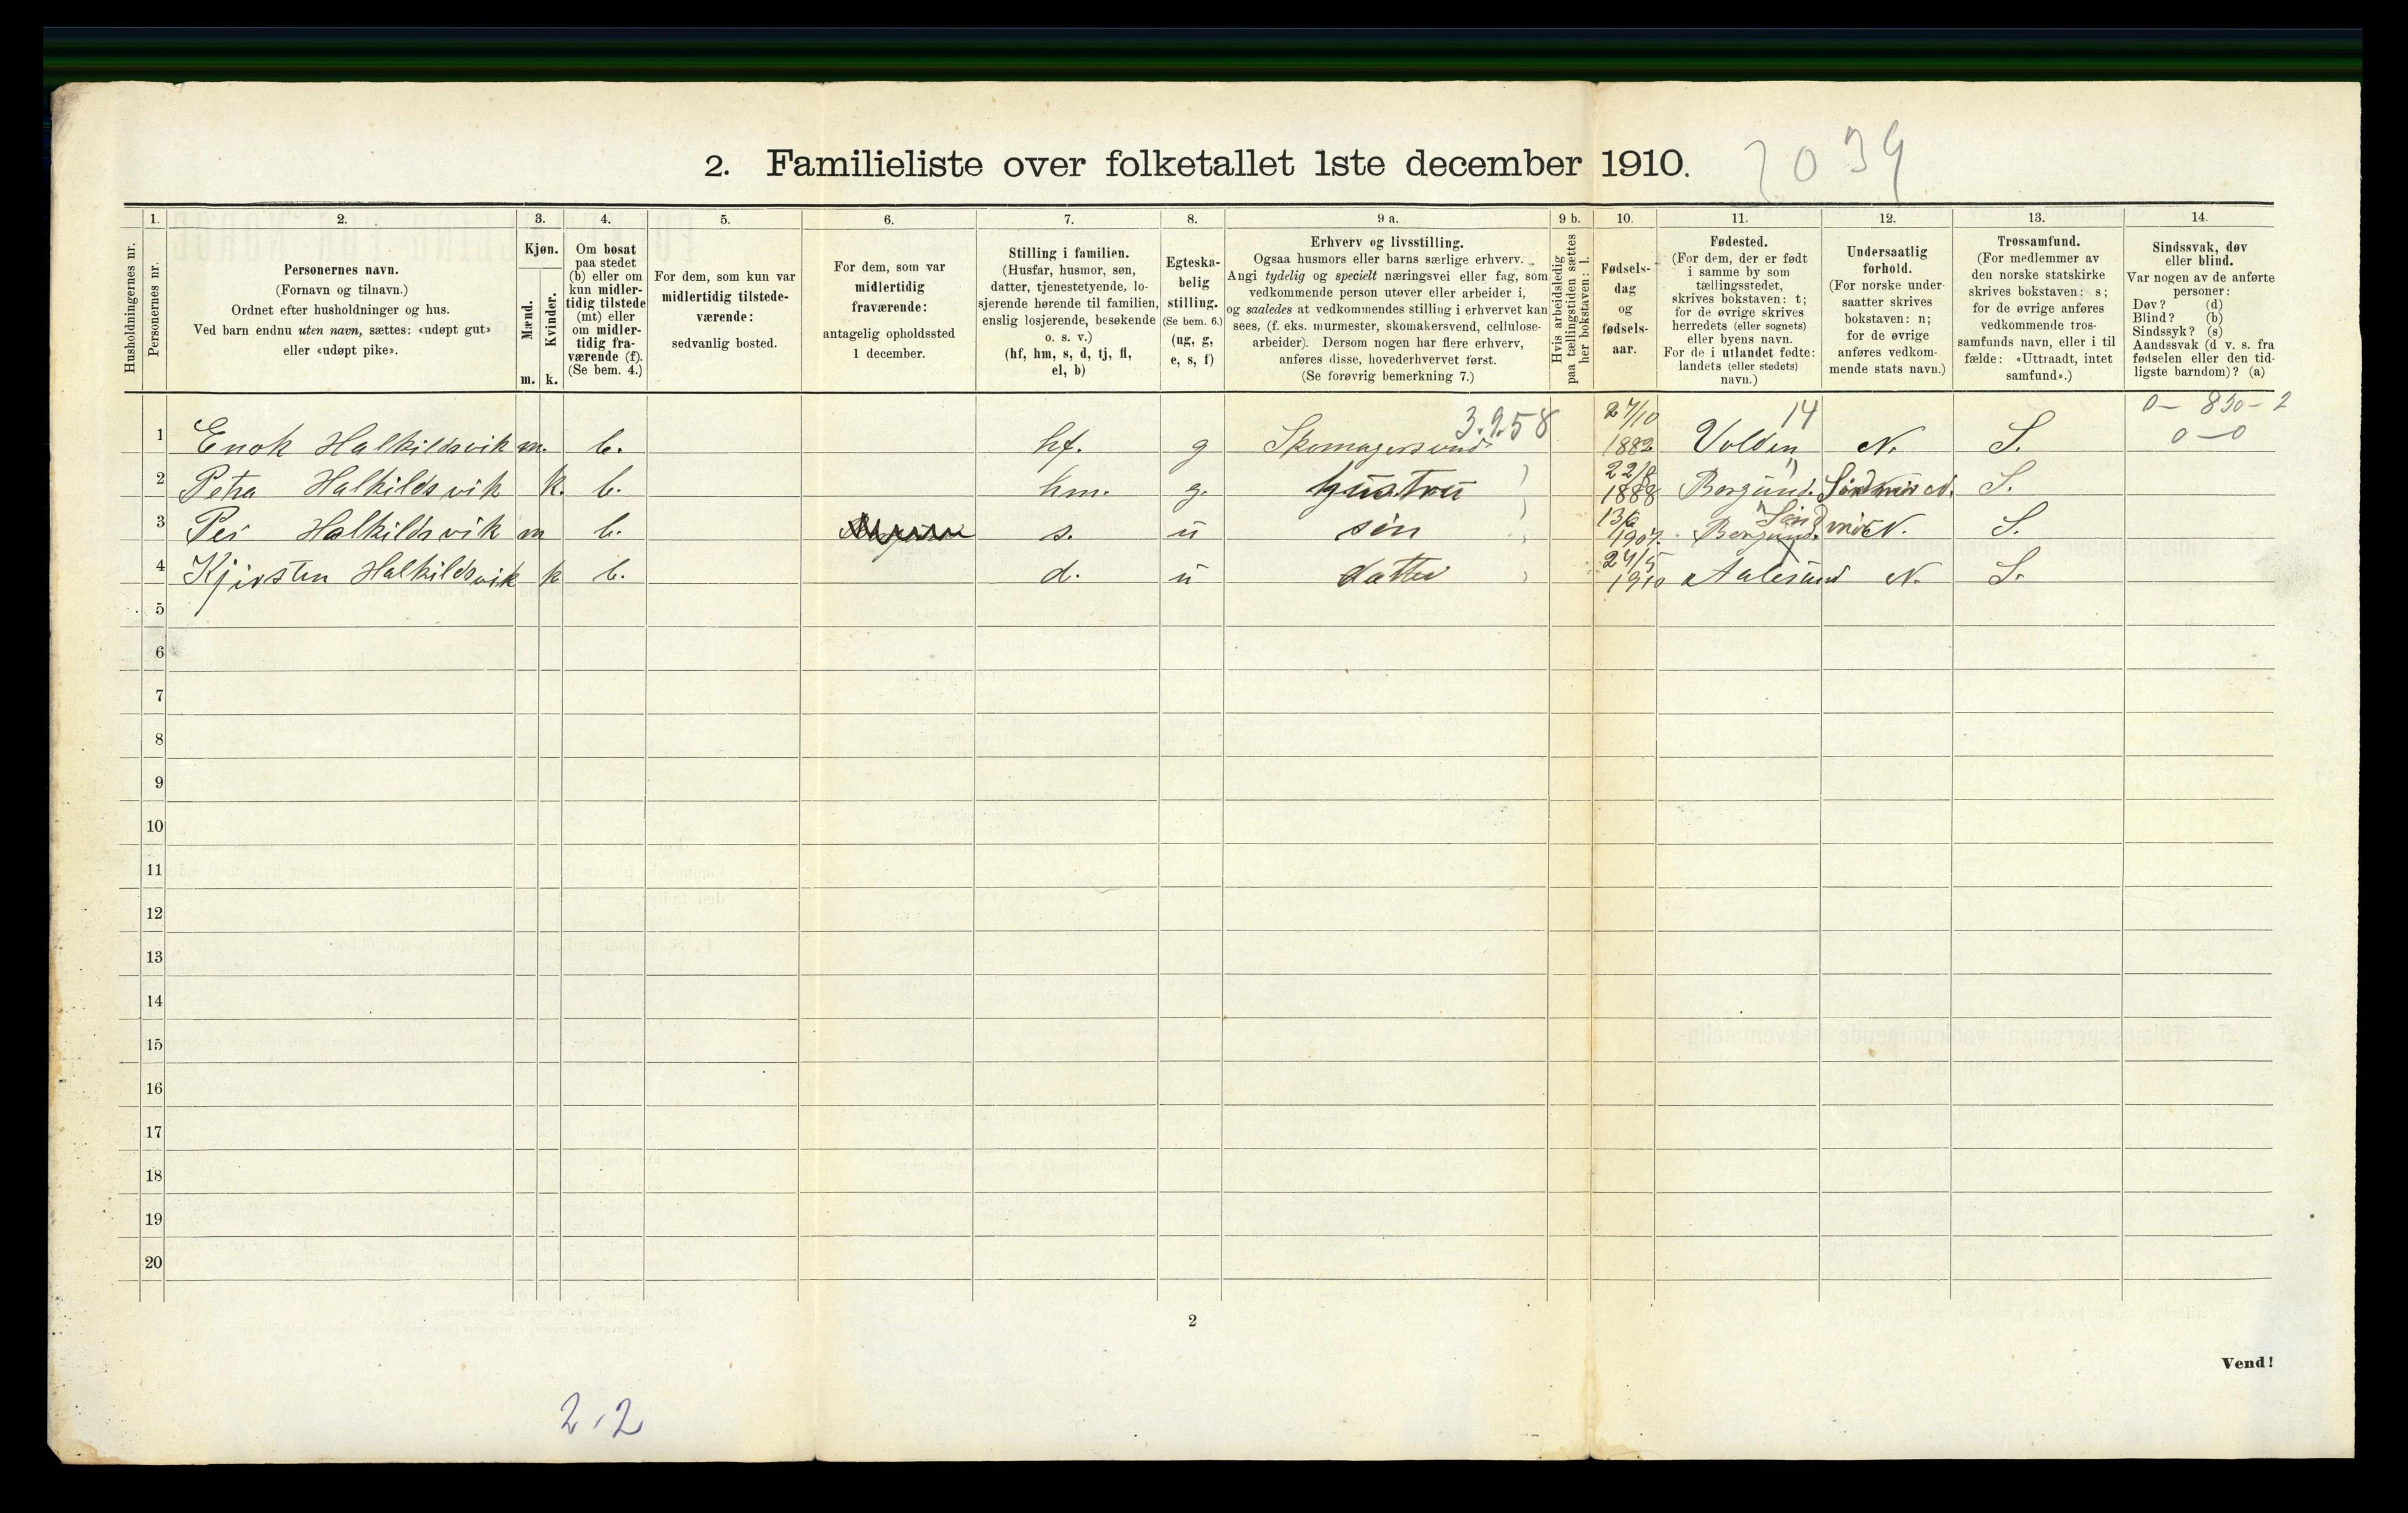 2. Familieliste over folketallet 1ste december 1910.
2039
1. 2. 3. 4. 5. 6. 7. 8. 9 a. 9 b. 10. 11. 12. 13. 14.
Husholdningernes nr.
Personernes nr.
Personernes navn.
(Fornavn og tilnavn.)
Ordnet efter husholdninger og hus.
Ved barn endnu uten navn, sættes: «udøpt gut»
eller «udøpt pike».
Kjøn.
Mænd.
Kvinder.
m. k.
Om bosat
paa stedet
(b) eller om
kun midler-
tidig tilstede
(mt) eller
om midler-
tidig fra-
værende (f).
(Se bem. 4.)
For dem, som kun var
midlertidig tilstede-
værende:
sedvanlig bosted.
For dem, som var
midlertidig
fraværende:
antagelig opholdssted
1 december.
Stilling i familien.
(Husfar, husmor, søn,
datter, tjenestetyende, lo-
sjerende hørende til familien,
enslig losjerende, besøkende
o. s. v.)
(hf, hm, s, d, tj, fl,
el, b)
Egteska-
belig
stilling.
(Se bem. 6.)
(ug, g,
e, s, f)
Erhverv og livsstilling.
Ogsaa husmors eller barns særlige erhverv.
Angi tydelig og specielt næringsvei eller fag, som
vedkommende person utøver eller arbeider i,
og saaledes at vedkommendes stilling i erhvervet kan
sees, (f. eks. murmester, skomakersvend, cellulose-
arbeider). Dersom nogen har flere erhverv,
anføres disse, hovederhvervet først.
(Se forøvrig bemerkning 7.)
Hvis arbeidsledig
paa tællingstiden sættes
her bokstaven: l.
Fødsels-
dag
og
fødsels-
aar.
Fødested.
(For dem, der er født
i samme by som
tællingsstedet,
skrives bokstaven: t;
for de øvrige skrives
herredets (eller sognets)
eller byens navn.
For de i utlandet fødte:
landets (eller stedets)
navn.)
Undersaatlig
forhold.
(For norske under-
saatter skrives
bokstaven: n;
for de øvrige
anføres vedkom-
mende stats navn.)
Trossamfund.
(For medlemmer av
den norske statskirke
skrives bokstaven: s;
for de øvrige anføres
vedkommende tros-
samfunds navn, eller i til
fælde: «Uttraadt, intet
samfund».)
Sindssvak, døv
eller blind.
Var nogen av de anførte
personer:
Døv? (d)
Blind? (b)
Sindssyk? (s)
Aandssvak (d v. s. fra
fødselen eller den tid-
ligste barndom)? (a)
3.9.58 27/10 14 0 – 850 – 2
1 Enok Halkildsvik m. b. hf. g Skomagersvend 1882 Volden N. S. 0 – 0
22/8
2 Petra Halkildsvik k. b. hm. g. hustru 1888 Borgund. Søndmør N. S.
13/6 Sønd
3 Per Halkildsvik m b. s. u søn 1907. Borgund. mør N. S.
27/5
4 Kjirsten Halkildsvik k b. d. u datter 1910 Aalesund N. S.
5
6
7
8
9
10
11
12
13
14
15
16
17
18
19
20
2
Vend!
2,2